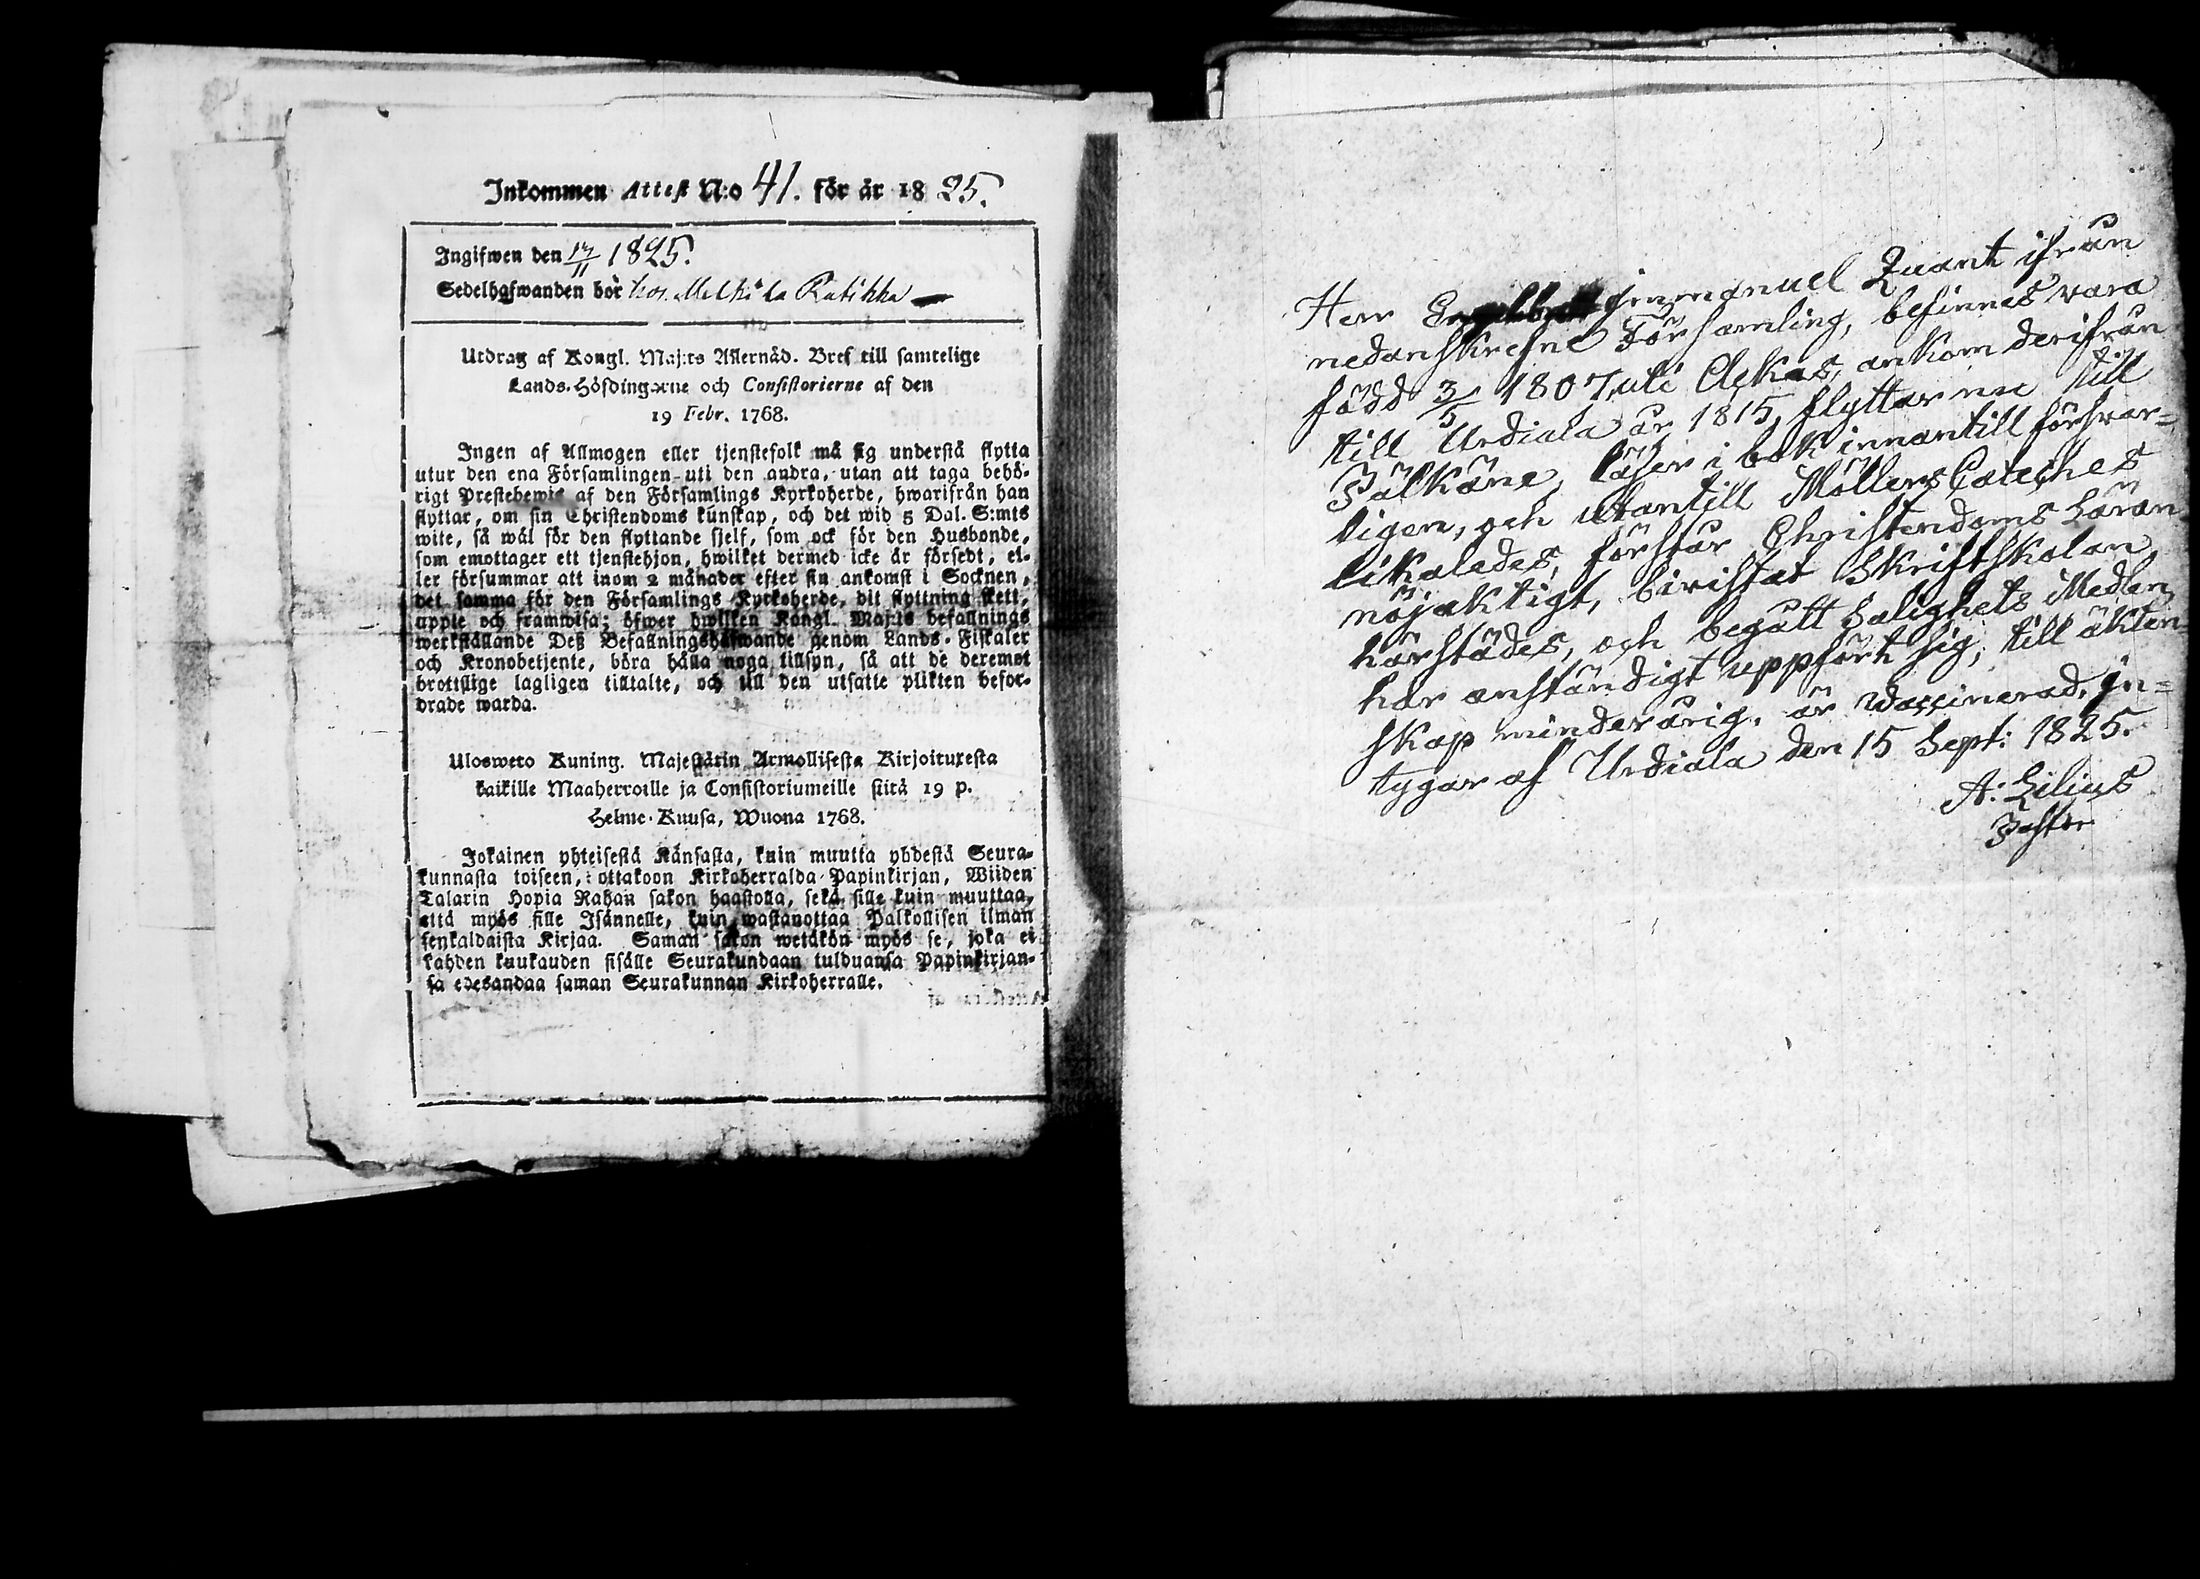 Inkommen Attest N:o 41. för år 1825.
Ingifwen den 17/11 1825.
Sedelhafwanden bör hos Mälkilä Rutikka
Utdrag af Kongl. Maj:ts Allernåd. Bref till samtelige
Lands-Höfdingarne och Consistorierne af den
19 Febr. 1768.
Ingen af Allmogen eller tjenstefolk må sig understå flytta
utur den ena Församlingen uti den andra, utan att taga behö-
rigt Prestebewis af den Församlings Kyrkoherde, hwarifrån han
flyttar, om sin Christendoms kunskap, och det wid 5 Dal. S:mts
wite, så wäl för den flyttande sjelf, som ock för den Husbonde,
som emottager ett tjenstehjon, hwilket dermed icke är försedt, el-
ler försummar att inom 2 månader efter sin ankomst i Socknen,
det samma för den Församlings Kyrkoherde, dit flyttning skett,
uppte och framwisa; öfwer hwilken Kongl. Maj:ts befallnings
werkställande Deß Befallningshafwande genom Lands-Fiskaler
och Kronobetjente, böra hålla noga tillsyn, så att de deremot
brottslige lagligen tilltalte, och till den utsatte plikten befor-
drade warda.
Ulosweto Kuning. Majestätin Armollisesta Kirjoituxesta
kaikille Maaherroille ja Consistoriumeille siitä 19 p.
Helme-Kuusa, Wuona 1768.
Jokainen yhteisestä Kansasta, kuin muutta yhdestä Seura-
kunnasta toiseen, ottakoon Kirkoherralda Papinkirjan, Wiiden
Talarin Hopia Rahan sakon haastolla, sekä sille kuin muuttaa,
että myös sille Isännelle, kuin wastanottaa Palkollisen ilman
senkaldaista Kirjaa. Saman sakon wetäkön myös se, joka ei
kahden kuukauden sisälle Seurakundaan tulduansa Papinkirjan-
sa edesandaa saman Seurakunnan Kirkoherralle.
Herr Immanuel Quant ifrån
nedanskrefne Församling, befinnes vara
född 3/5 1807 uti Ackas, ankom derifrån
till Urdiala år 1815, flyttar nu till
Pälkäne, läser i bok innantill försvar-
ligen, och utantill Möllers Cateches
likaledes, förstår Christendoms Läran
nöjaktigt, bivistat Skriftskolan
härstädes, och begått Salighets Medlen,
har anständigt uppfört sig, till äkten-
skap minderårig, är vaccinerad, in-
tygar af Urdiala den 15 Sept: 1825.
A: Lilius
Pastor